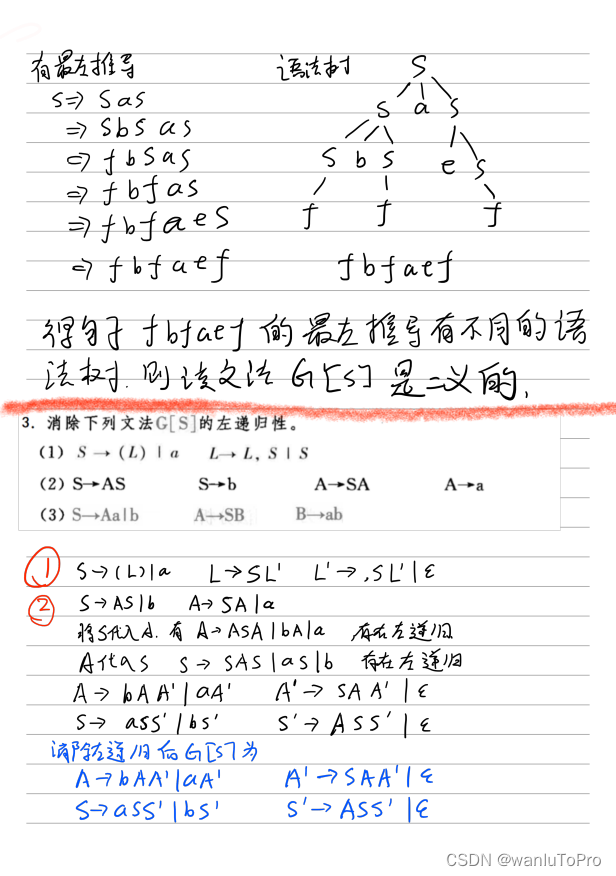 有最左推导 语法树
S⇒ Sas
⇒ Sbs as
⇒ fbSas
⇒ fbfas
⇒ fbfaes
⇒ fbfaef
S
S a S
S b S e S
f f f
fbfaef
得句子 fbfaef 的最左推导有不同的语
法树. 则该文法 G[S] 是二义的.
3. 消除下列文法G[S]的左递归性。
(1) S → (L) | a L→ L, S | S
(2) S→AS S→b A→SA A→a
(3) S→Aa|b A→SB B→ab
① S→(L)|a L→SL' L'→,SL'|ε
② S→AS|b A→SA|a
将S代入A. 有 A→ASA|bA|a 存在左递归
A代入S S→SAS|aS|b 存在左递归
A→ bAA'|aA' A'→ SAA'|ε
S→ aSS'|bS' S'→ ASS'|ε
消除左递归后G[S]为
A→bAA'|aA' A'→SAA'|ε
S→aSS'|bS' S'→ASS'|ε
CSDN @wanluToPro